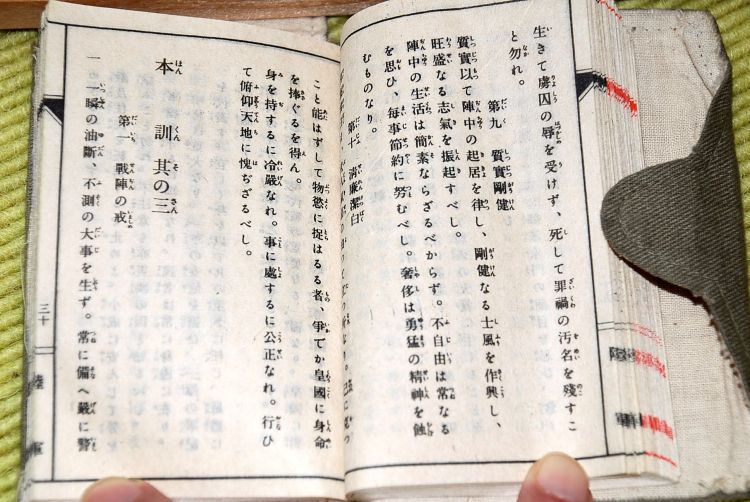 生きて虜囚の辱を受けず、死して罪禍の汚名を殘すこ
と勿れ。
第九 質實剛健
質實以て陣中の起居を律し、剛健なる士風を作興し、
旺盛なる志氣を振起すべし。
陣中の生活は簡素ならざるべからず。不自由は常なる
を思ひ、每事節約に努むべし。奢侈は勇猛の精神を蝕
むものなり。
第十 淸廉潔白
こと能はずして物慾に捉はるる者、爭でか皇國に身命
を捧ぐるを得ん。
身を持するに冷嚴なれ。事に處するに公正なれ。行ひ
て俯仰天地に愧ぢざるべし。
本訓 其の三
第一 戰陣の戒
一 一瞬の油斷、不測の大事を生ず。常に備へ嚴に警
三十
陸軍